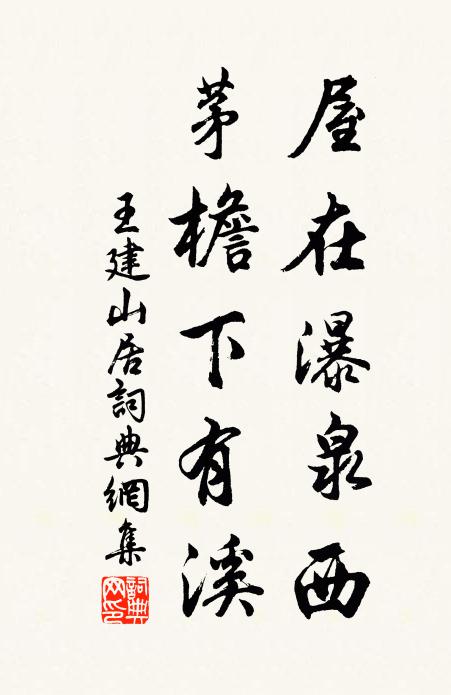 屋在瀑泉西
茅檐下有溪
王建山居詞典網集
詞典网印